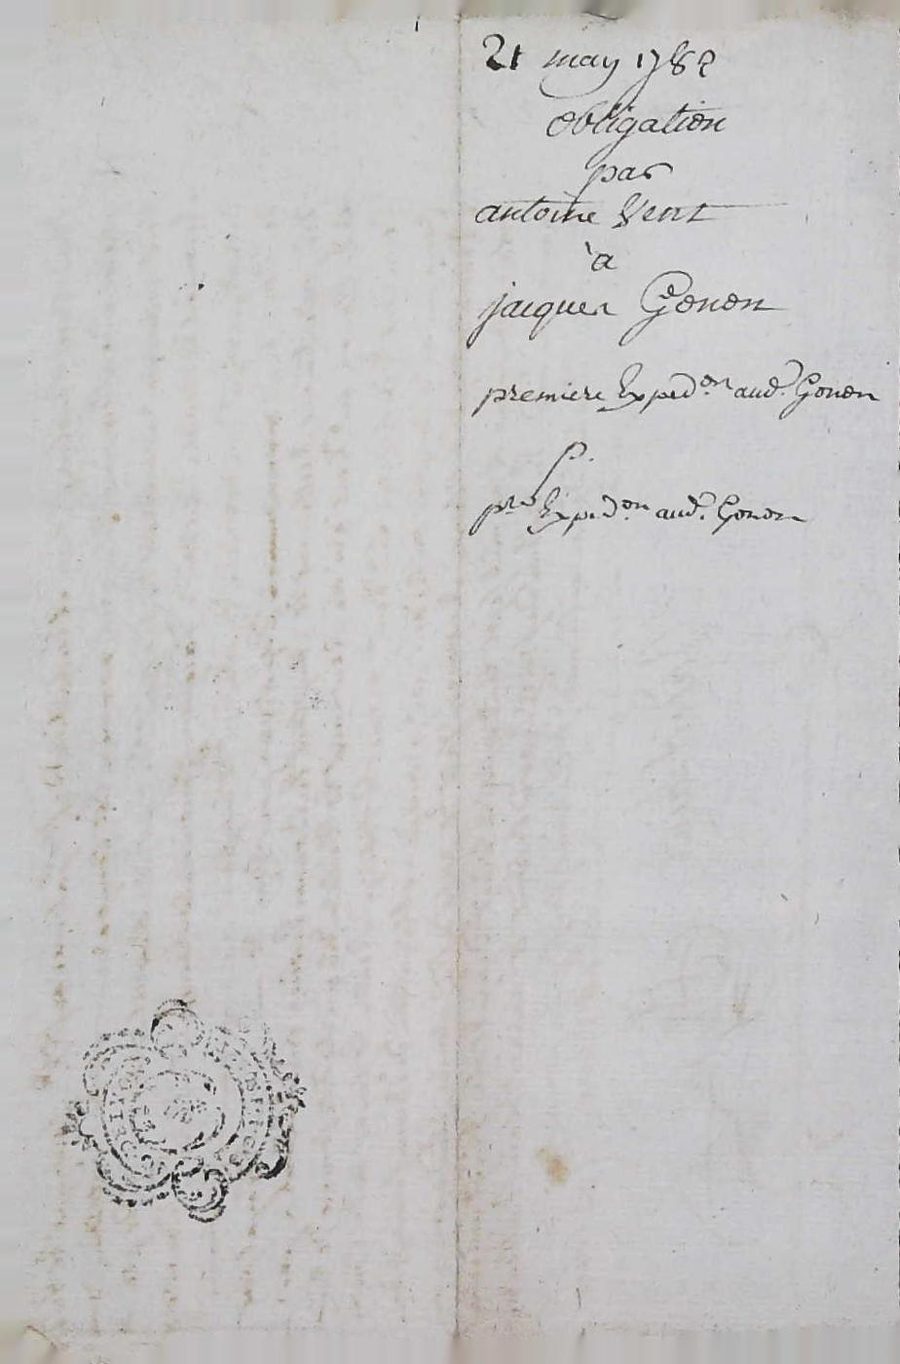 21 may 1782
obligation
par
antoine
à
jacques Gonon
premiere Exped.on aud. Gonon
P.
pre Exped.on aud. Gonon